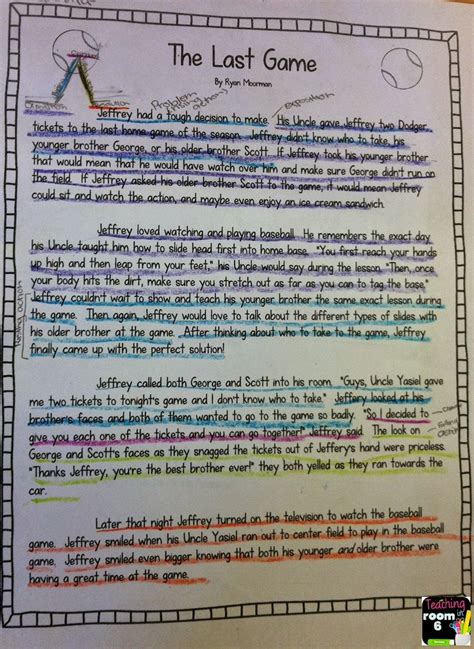 The Last Game
By Ryan Moorman
Problem
rising
action
exposition
Jeffrey had a tough decision to make. His Uncle gave Jeffrey two Dodger
tickets to the last home game of the season. Jeffrey didn't know who to take, his
younger brother George, or his older brother Scott. If Jeffrey took his younger brother
that would mean that he would have watch over him and make sure George didn't run on
the field. If Jeffrey asked his older brother Scott to the game, it would mean Jeffrey
could sit and watch the action, and maybe even enjoy an ice cream sandwich.
Jeffrey loved watching and playing baseball. He remembers the exact day
his Uncle taught him how to slide head first into home base. "You first reach your hands
up high and then leap from your feet," his Uncle would say during the lesson. "Then, once
your body hits the dirt, make sure you stretch out as far as you can to tag the base."
Jeffrey couldn't wait to show and teach his younger brother the same exact lesson during
the game. Then again, Jeffrey would love to talk about the different types of slides with
his older brother at the game. After thinking about who to take to the game, Jeffrey
finally came up with the perfect solution!
Jeffrey called both George and Scott into his room. "Guys, Uncle Yasiel gave
me two tickets to tonight's game and I don't know who to take." Jeffery looked at his
brother's faces and both of them wanted to go to the game so badly. "So I decided to
give you each one of the tickets and you can go together!" Jeffrey said. The look on
George and Scott's faces as they snagged the tickets out of Jeffery's hand were priceless.
"Thanks Jeffrey, you're the best brother ever!" they both yelled as they ran towards the
car.
Later that night Jeffrey turned on the television to watch the baseball
game. Jeffrey smiled when his Uncle Yasiel ran out to center field to play in the baseball
game. Jeffrey smiled even bigger knowing that both his younger and older brother were
having a great time at the game.
Teaching
in
room
6